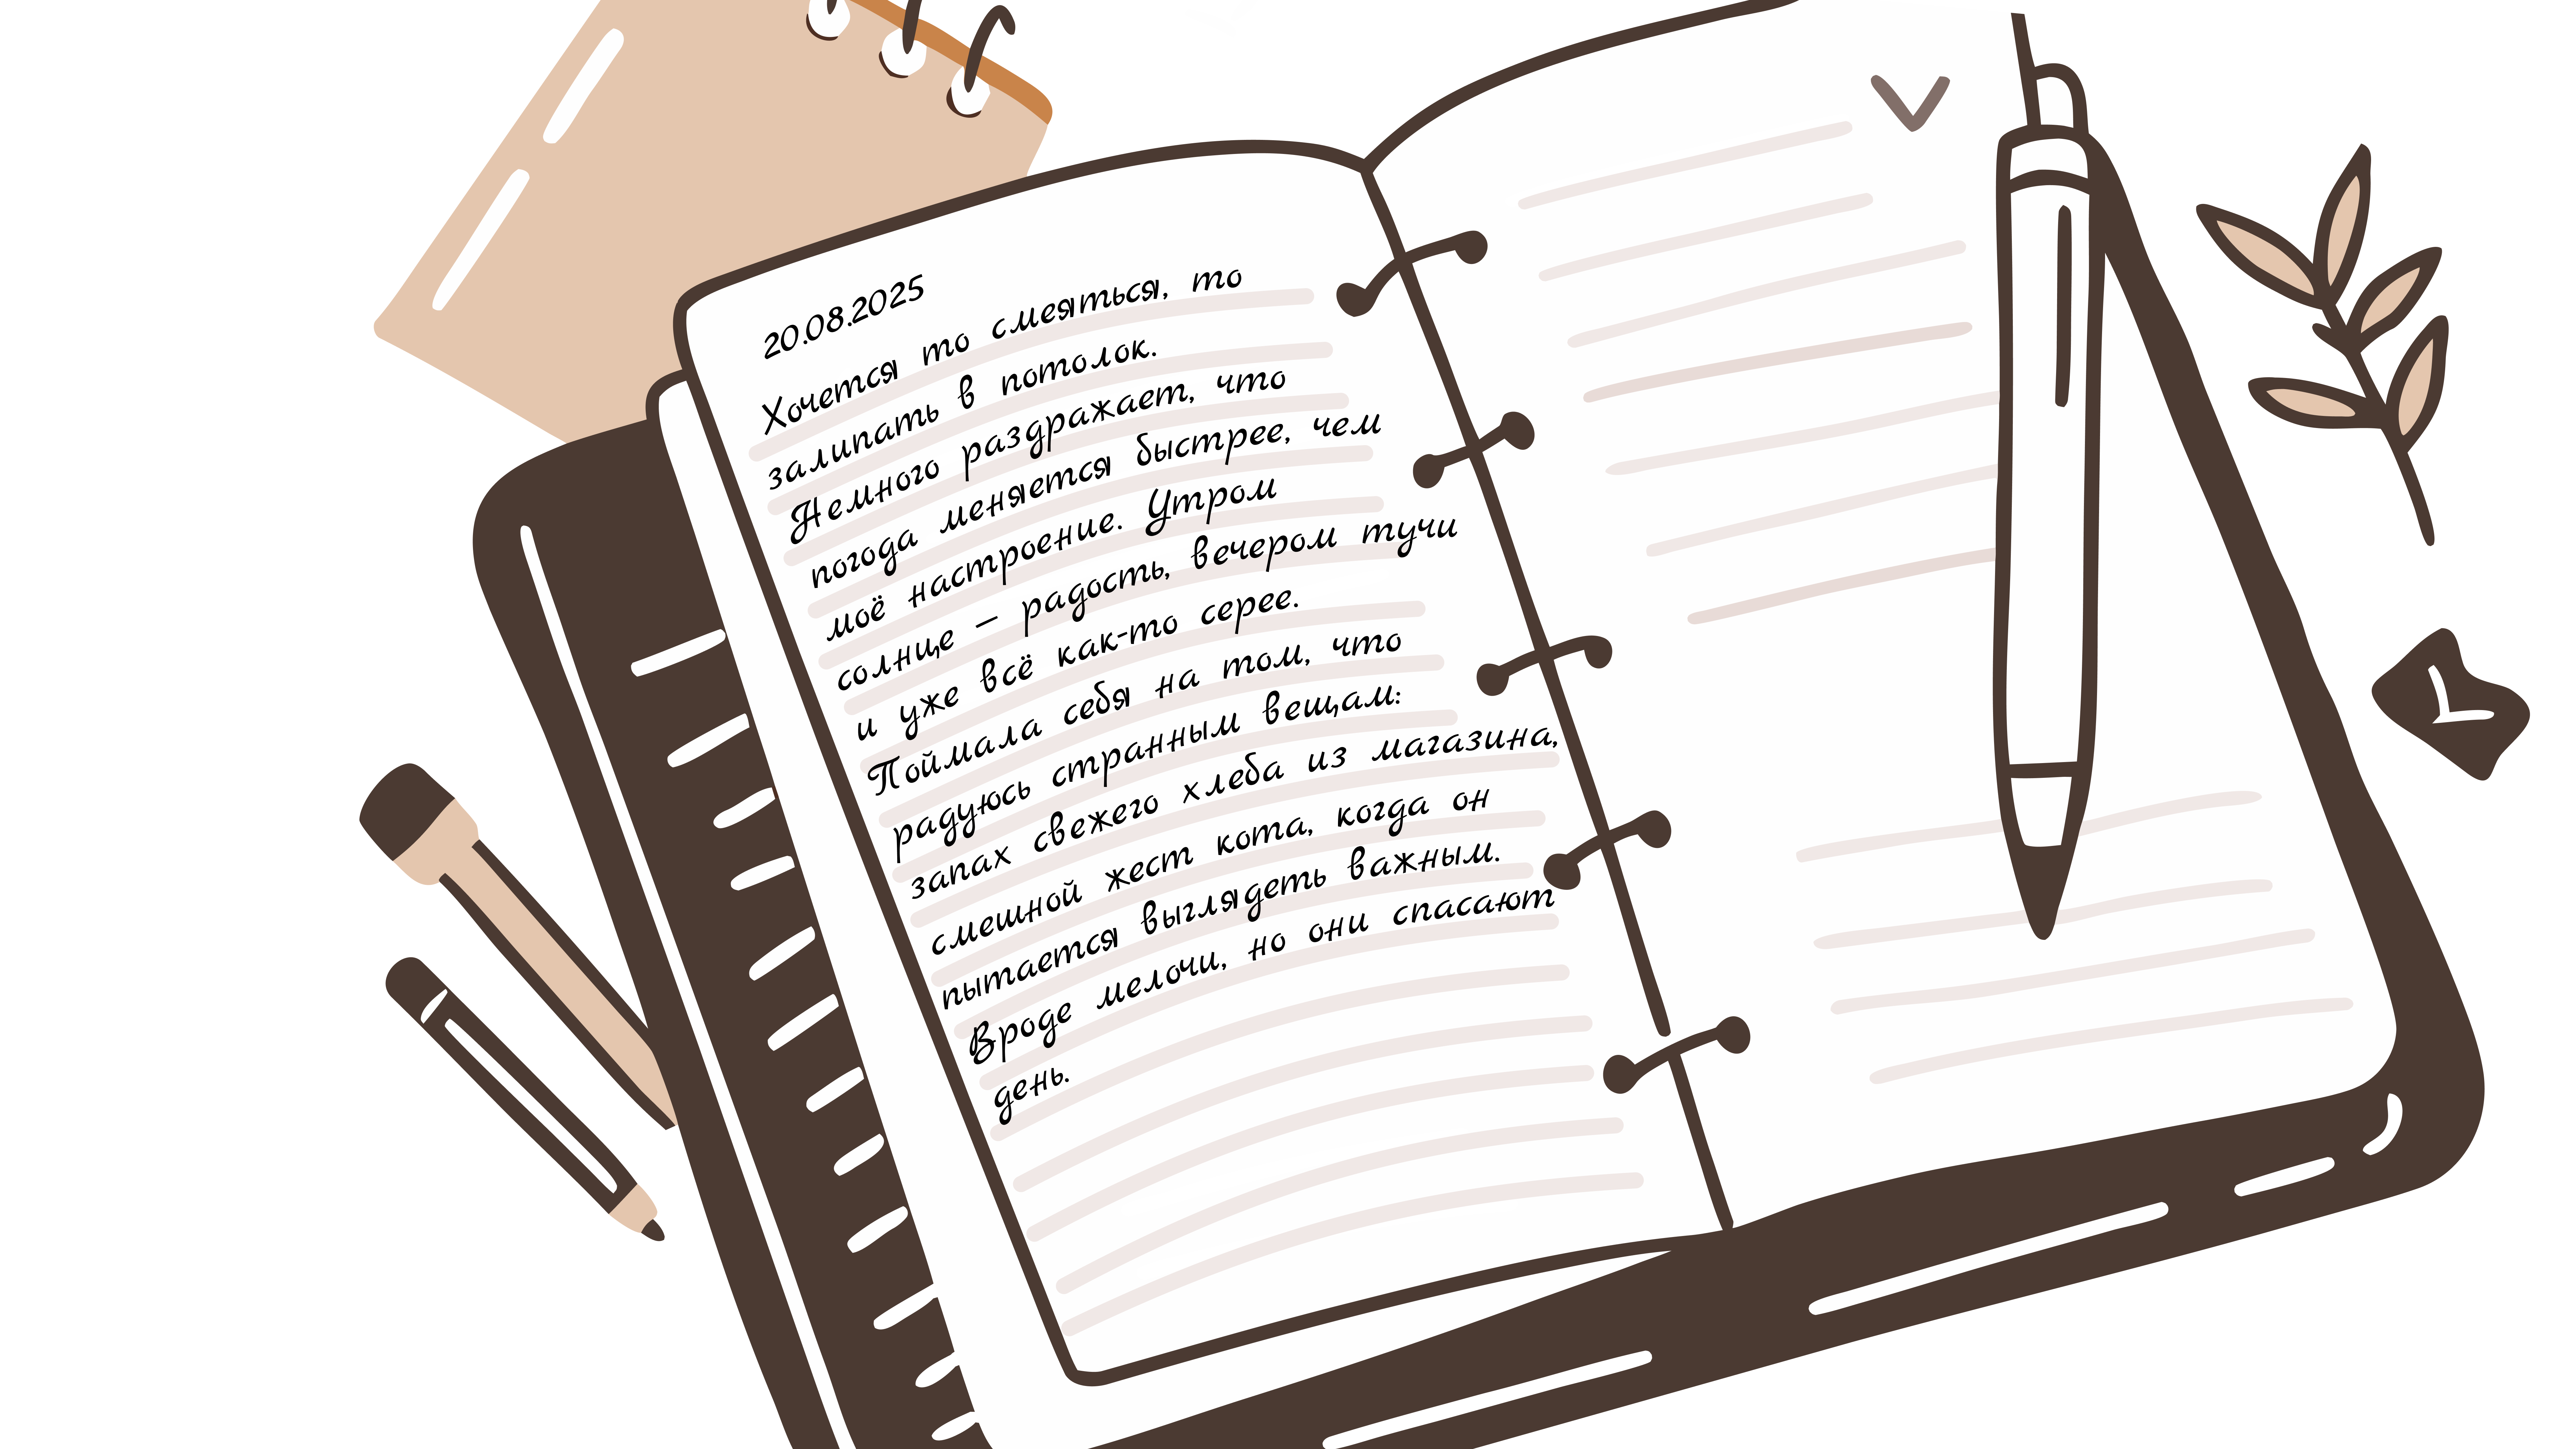 20.08.2025
Хочется то смеяться, то
залипать в потолок.
Немного раздражает, что
погода меняется быстрее, чем
моё настроение. Утром
солнце – радость, вечером тучи
и уже всё как-то серее.
Поймала себя на том, что
радуюсь странным вещам:
запах свежего хлеба из магазина,
смешной жест кота, когда он
пытается выглядеть важным.
Вроде мелочи, но они спасают
день.